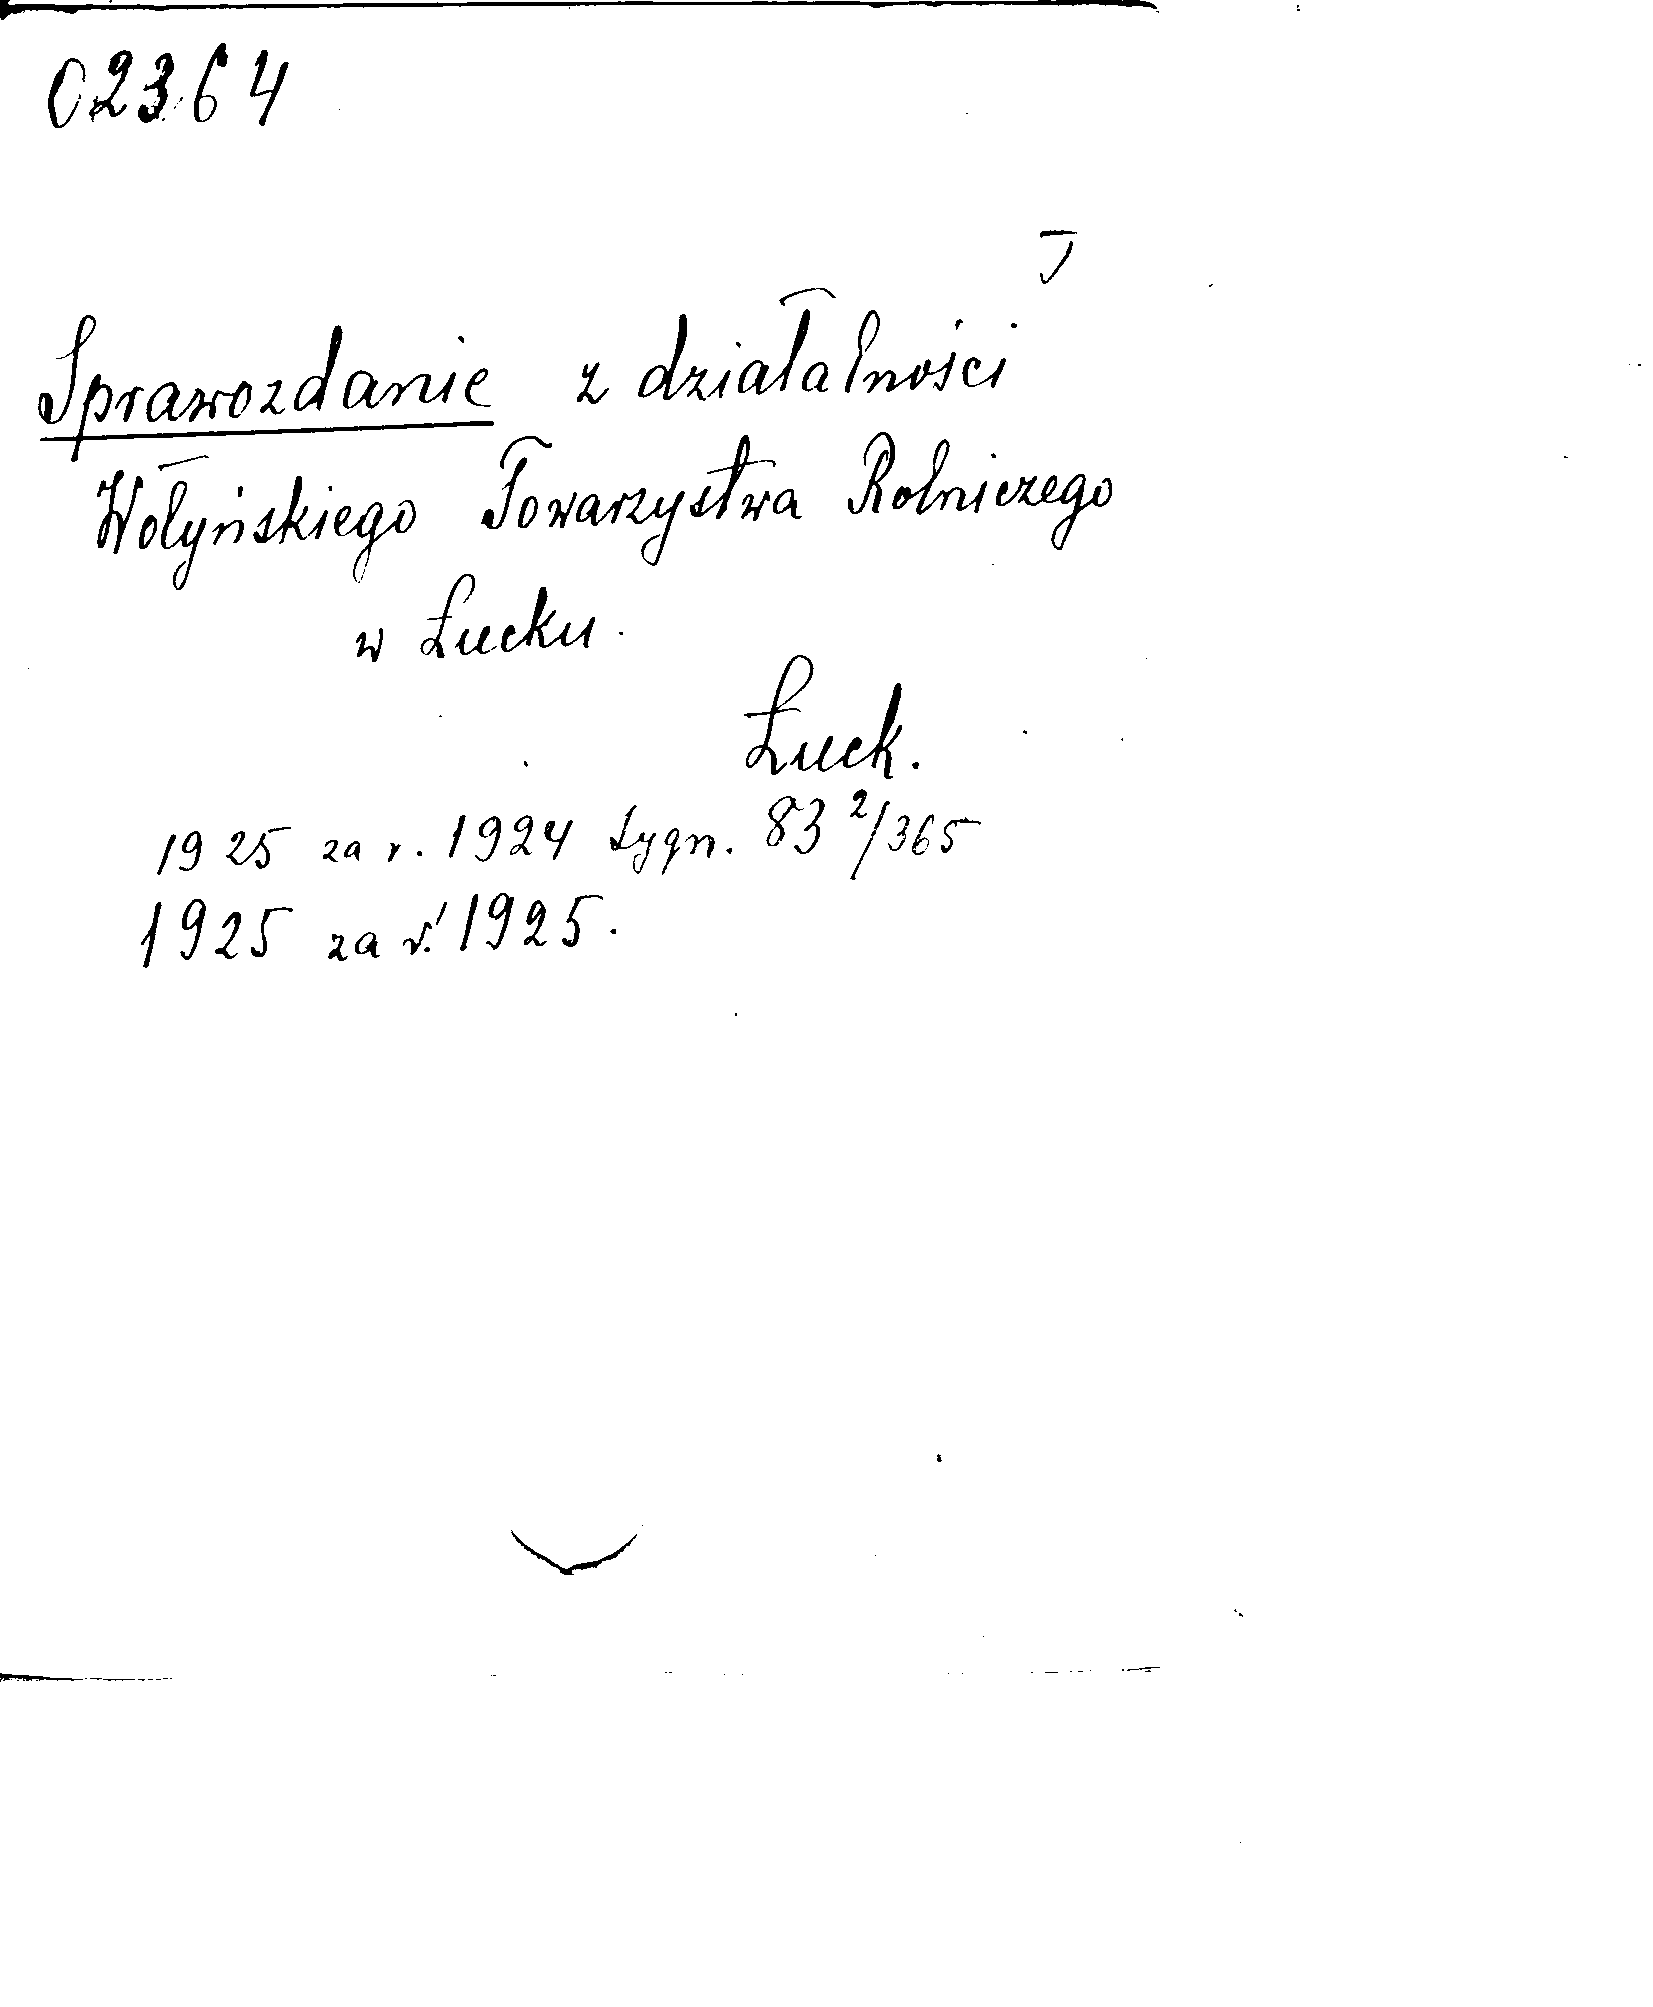 02364
Sprawozdanie z działalności
Wołyńskiego Towarzystwa Rolniczego
w Łucku.
Łuck.
1925 za r. 1924 Sygn. 83 2/365
1925 za r. 1925.